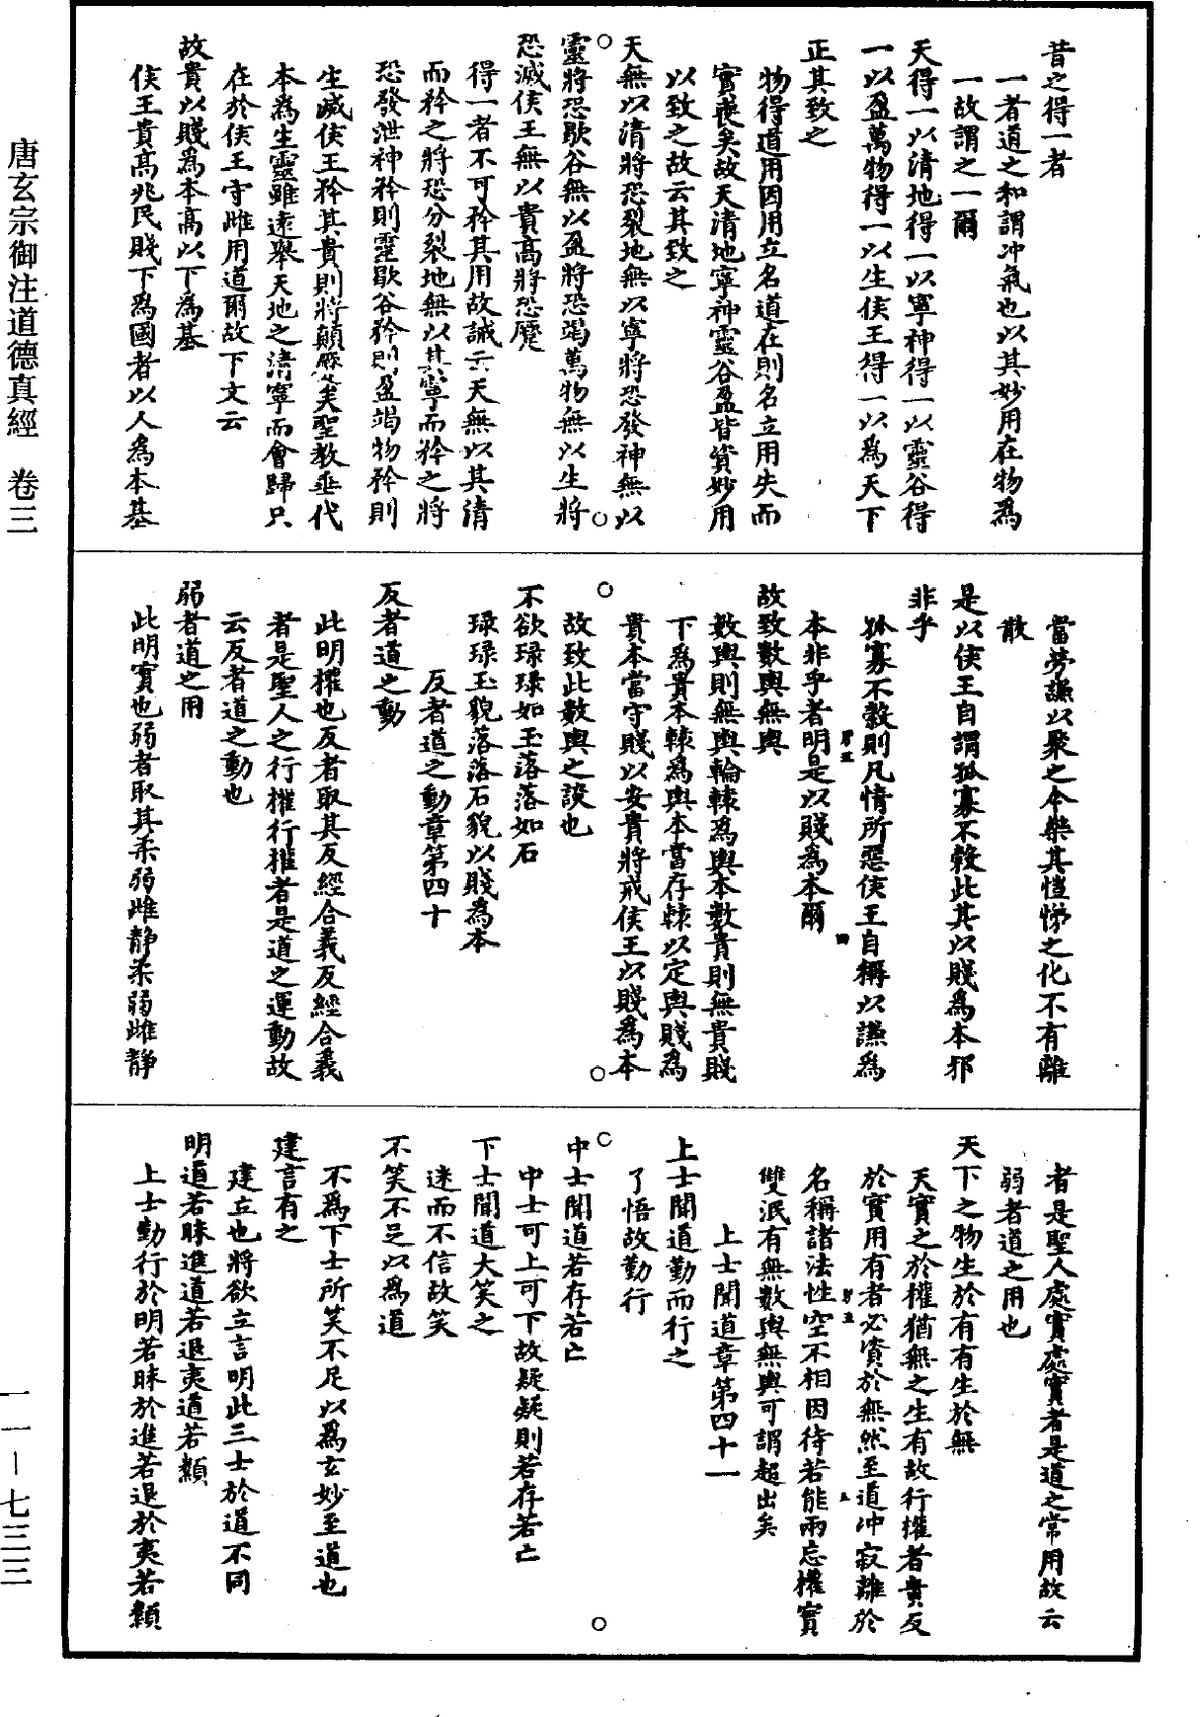 昔之得一者
一者道之和謂冲氣也以其妙用在物爲
一故謂之一爾
天得一以清地得一以寧神得一以靈谷得
一以盈萬物得一以生侯王得一以爲天下
正其致之
物得道用因用立名道在則名立用失而
實喪矣故天清地寧神靈谷盈皆資妙用
以致之故云其致之
天無以清將恐裂地無以寧將恐發神無以
靈將恐歇谷無以盈將恐竭萬物無以生將
恐滅侯王無以貴高將恐蹷
得一者不可矜其用故誡云天無以其清
而矜之將恐分裂地無以其寧而矜之將
恐發泄神矜則靈歇谷矜則盈竭物矜則
生滅侯王矜其貴則將顛蹶矣聖教垂代
本為生靈雖遠舉天地之清寧而會歸只
在於侯王守雌用道爾故下文云
故貴以賤爲本高以下爲基
侯王貴高兆民賤下爲國者以人爲本基
當勞謙以聚之令樂其愷悌之化不有離
散
是以侯王自謂孤寡不穀此其以賤爲本邪
非乎
孤寡不穀則凡情所惡侯王自稱以謙爲
本非乎者明是以賤爲本爾
故致數輿無輿
數輿則無輿輪轅爲輿本數貴則無貴賤
下爲貴本轅爲輿本當存轅以定輿賤爲
貴本當守賤以安貴將戒侯王以賤爲本
故致此數輿之談也
不欲琭琭如玉落落如石
琭琭玉貌落落石貌以賤為本
反者道之動章第四十
反者道之動
此明權也反者取其反經合義反經合義
者是聖人之行權行權者是道之運動故
云反者道之動也
弱者道之用
此明實也弱者取其柔弱雌静柔弱雌静
者是聖人處實處實者是道之常用故云
弱者道之用也
天下之物生於有有生於無
天實之於權猶無之生有故行權者貴反
於實用有者必資於無然至道冲寂離於
名稱諸法性空不相因待若能兩忘權實
雙泯有無數輿無輿可謂超出矣
上士聞道章第四十一
上士聞道勤而行之
了悟故勤行
中士聞道若存若亡
中士可上可下故疑疑則若存若亡
下士聞道大笑之
迷而不信故笑
不笑不足以為道
不爲下士所笑不足以爲玄妙至道也
建言有之
建立也將欲立言明此三士於道不同
明道若昧進道若退夷道若纇
上士勤行於明若昧於進若退於夷若纇
唐玄宗御注道德真經　卷三
一一—七三三